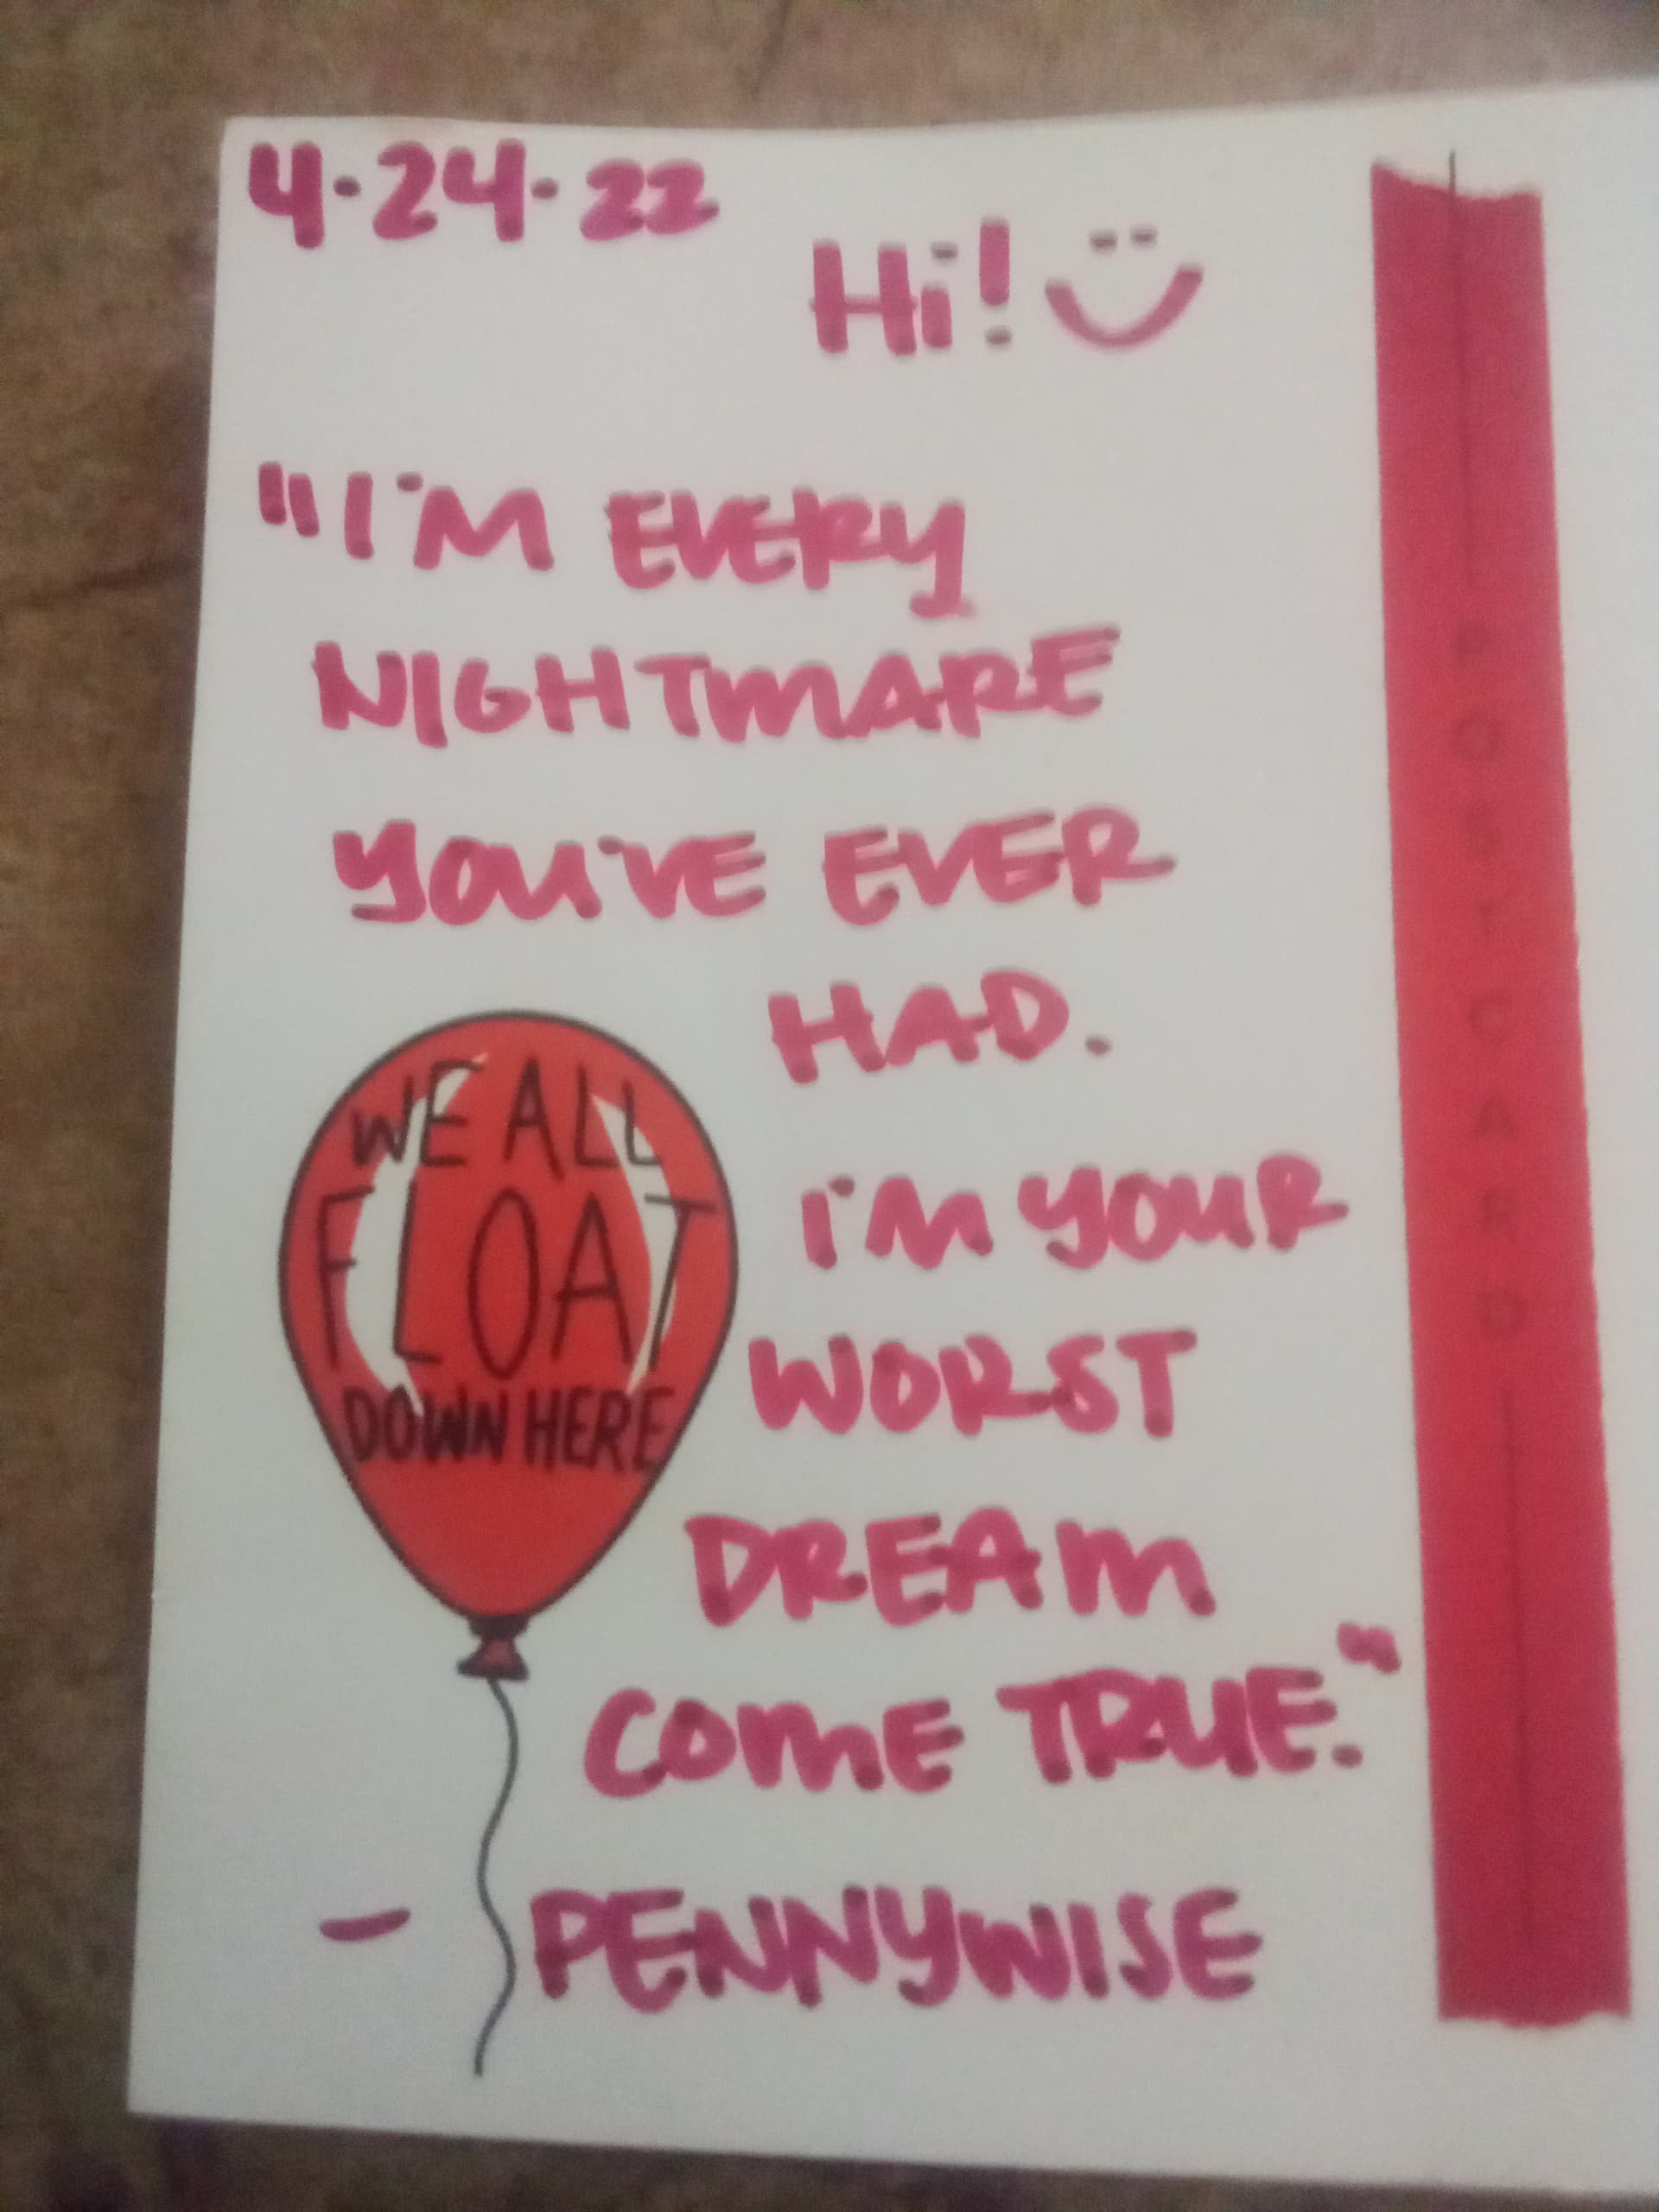 4·24·22
Hi!
"I'M EVERY
NIGHTMARE
YOU'VE EVER
HAD.
I'M YOUR
WORST
DREAM
COME TRUE."
- PENNYWISE
WE ALL
FLOAT
DOWN HERE
POSTCARD